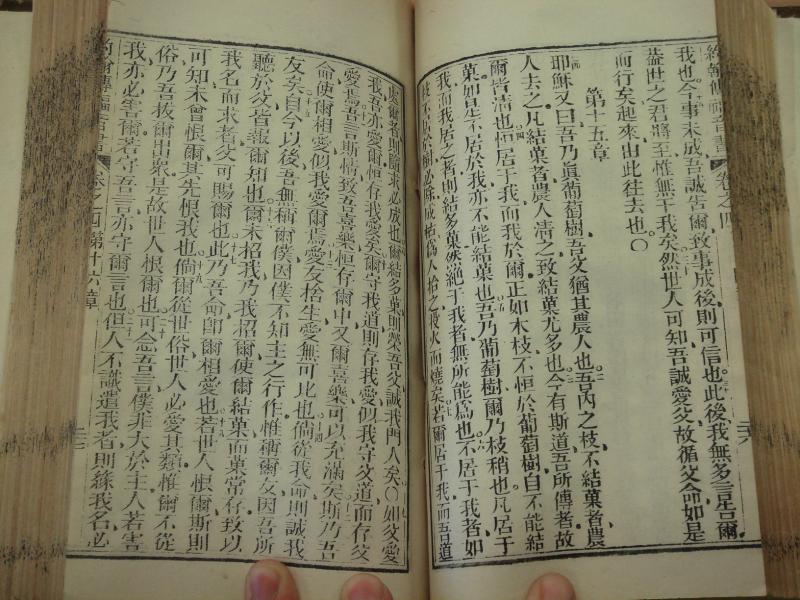 約翰傳福音書 卷之四
我也今事未成吾誠告爾致事成後則可信也此後我無多言告爾
蓋世之君將至惟無于我矣然世人可知吾誠愛父故循父命如是
而行矣起來出此往去也○
第十五章
耶穌又曰吾乃眞葡萄樹吾父猶其農人也吾內之枝不結菓者農
人去之凡結菓者農人清之致結菓尤多也今有斯道吾所傳者故
爾皆清也恒居于我而我於爾正如木枝不恒於葡萄樹自不能結
菓如是不居於我亦不能結菓也吾乃葡萄樹爾乃枝稍也凡居于
我而我居之者則結多菓然絕于我者無所能爲也不居于我者如
枝不居於樹必除成枯爲人拾之投火而燒矣若爾居于我而吾道
處爾者則隨求必成也爾結多菓則榮吾父誠我門人矣○如父愛
我吾亦愛爾恒存我愛矣爾守我道則存我愛似我守父道而存父
愛焉吾言斯情致吾喜樂恒存爾中又爾喜樂可以充滿矣斯乃吾
命使爾相愛似我愛爾焉愛友捨生愛無可比也倘從我命則誠我
友矣自今以後吾無稱爾僕因僕不知主之行作惟稱爾友因吾所
聽於父皆報爾知也爾未招我乃我招爾使爾結菓而菓常存致以
我名而求者父可賜爾也此乃吾命卽爾相愛也若世人恨爾斯則
可知未曾恨爾其先恨我也倘爾從世俗世人必愛其類惟爾不從
俗乃吾拔爾出衆是故世人恨爾也可念吾言僕非大於主人若害
我亦必害爾若守吾言亦守爾言也但人不識遣我者則緣我名必
約翰傳福音書 卷之四第十六章